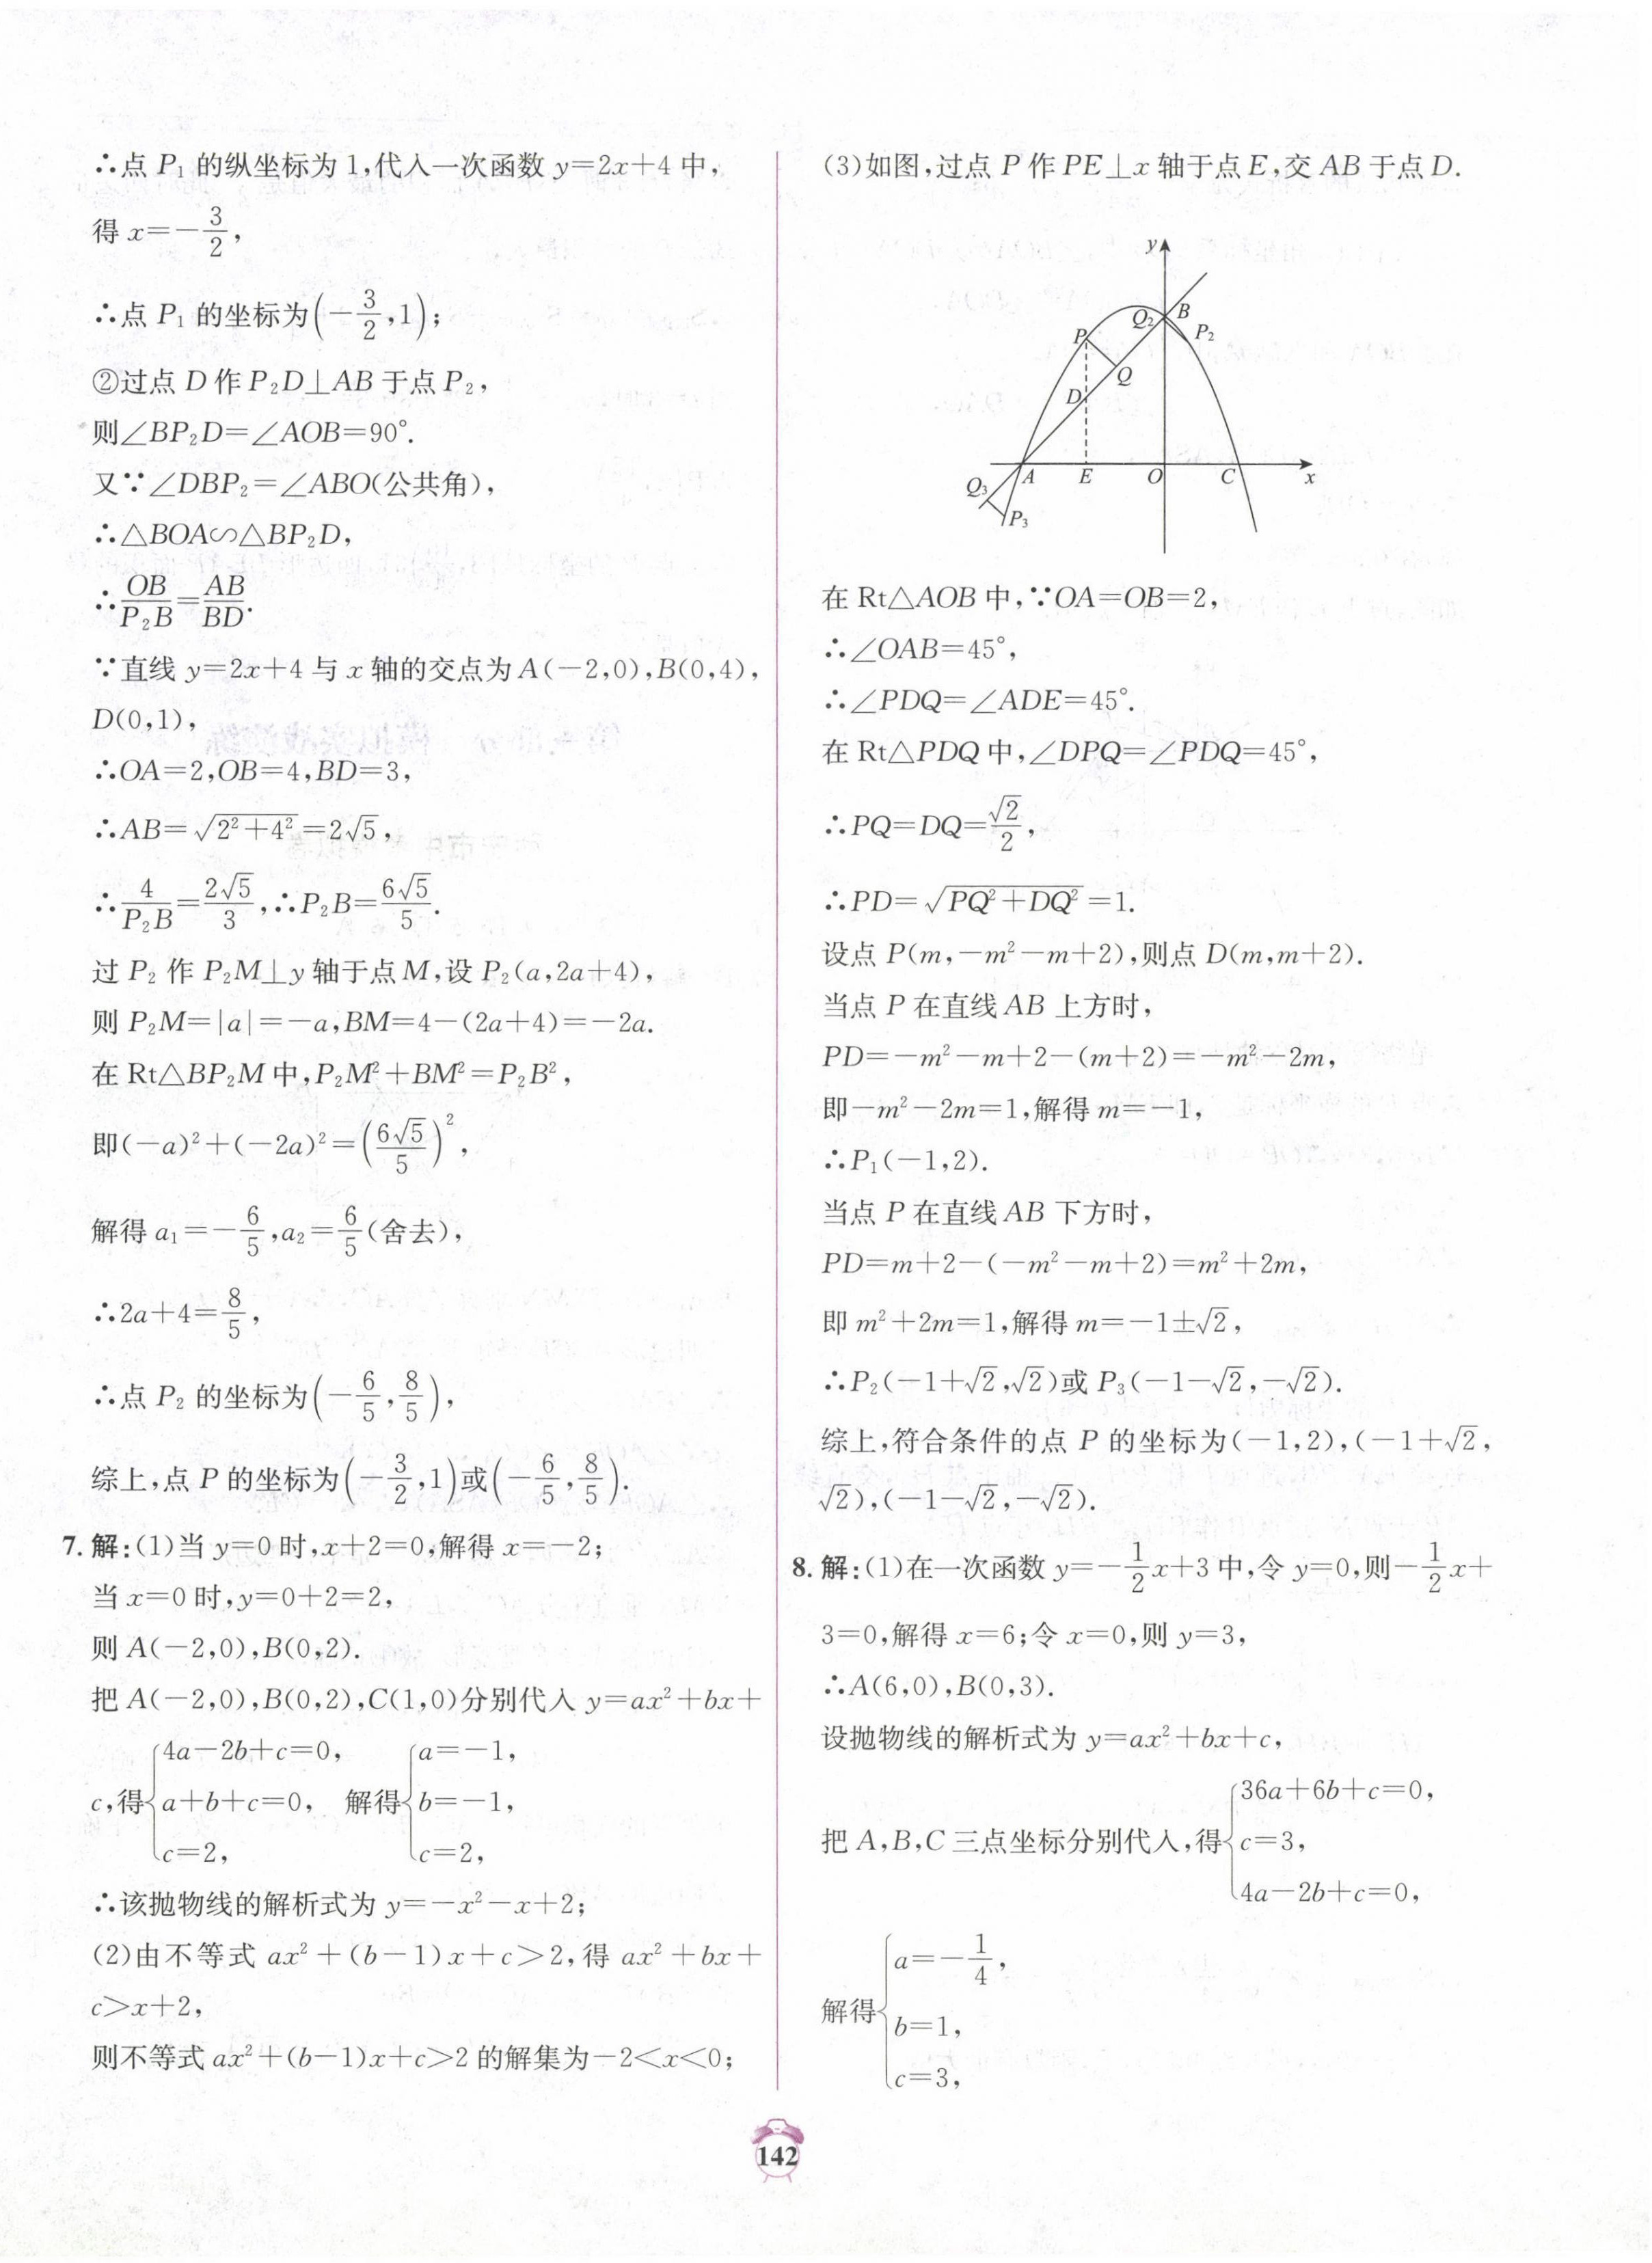 ∴点 P₁ 的纵坐标为 1,代入一次函数 y=2x+4 中,
得 x=-3/2,
∴点 P₁ 的坐标为(-3/2,1);
②过点 D 作 P₂D⊥AB 于点 P₂,
则∠BP₂D=∠AOB=90°.
又∵∠DBP₂=∠ABO(公共角),
∴△BOA∽△BP₂D,
∴OB/P₂B=AB/BD.
∵直线 y=2x+4 与 x 轴的交点为 A(-2,0),B(0,4),
D(0,1),
∴OA=2,OB=4,BD=3,
∴AB=√(2²+4²)=2√5,
∴4/P₂B=2√5/3,∴P₂B=6√5/5.
过 P₂ 作 P₂M⊥y 轴于点 M,设 P₂(a,2a+4),
则 P₂M=|a|=-a,BM=4-(2a+4)=-2a.
在 Rt△BP₂M 中,P₂M²+BM²=P₂B²,
即(-a)²+(-2a)²=(6√5/5)²,
解得 a₁=-6/5,a₂=6/5(舍去),
∴2a+4=8/5,
∴点 P₂ 的坐标为(-6/5,8/5),
综上,点 P 的坐标为(-3/2,1)或(-6/5,8/5).
7. 解:(1)当 y=0 时,x+2=0,解得 x=-2;
当 x=0 时,y=0+2=2,
则 A(-2,0),B(0,2).
把 A(-2,0),B(0,2),C(1,0)分别代入 y=ax²+bx+
c,得{4a-2b+c=0, a+b+c=0, c=2, 解得{a=-1, b=-1, c=2,
∴该抛物线的解析式为 y=-x²-x+2;
(2)由不等式 ax²+(b-1)x+c>2,得 ax²+bx+
c>x+2,
则不等式 ax²+(b-1)x+c>2 的解集为-2<x<0;
(3)如图,过点 P 作 PE⊥x 轴于点 E,交 AB 于点 D.
y
Q₂ B
P P₂
Q
D
A E O C x
Q₃
P₃
在 Rt△AOB 中,∵OA=OB=2,
∴∠OAB=45°,
∴∠PDQ=∠ADE=45°.
在 Rt△PDQ 中,∠DPQ=∠PDQ=45°,
∴PQ=DQ=√2/2,
∴PD=√(PQ²+DQ²)=1.
设点 P(m,-m²-m+2),则点 D(m,m+2).
当点 P 在直线 AB 上方时,
PD=-m²-m+2-(m+2)=-m²-2m,
即-m²-2m=1,解得 m=-1,
∴P₁(-1,2).
当点 P 在直线 AB 下方时,
PD=m+2-(-m²-m+2)=m²+2m,
即 m²+2m=1,解得 m=-1±√2,
∴P₂(-1+√2,√2)或 P₃(-1-√2,-√2).
综上,符合条件的点 P 的坐标为(-1,2),(-1+√2,
√2),(-1-√2,-√2).
8. 解:(1)在一次函数 y=-1/2x+3 中,令 y=0,则-1/2x+
3=0,解得 x=6;令 x=0,则 y=3,
∴A(6,0),B(0,3).
设抛物线的解析式为 y=ax²+bx+c,
把 A,B,C 三点坐标分别代入,得{36a+6b+c=0, c=3, 4a-2b+c=0,
解得{a=-1/4, b=1, c=3,
142